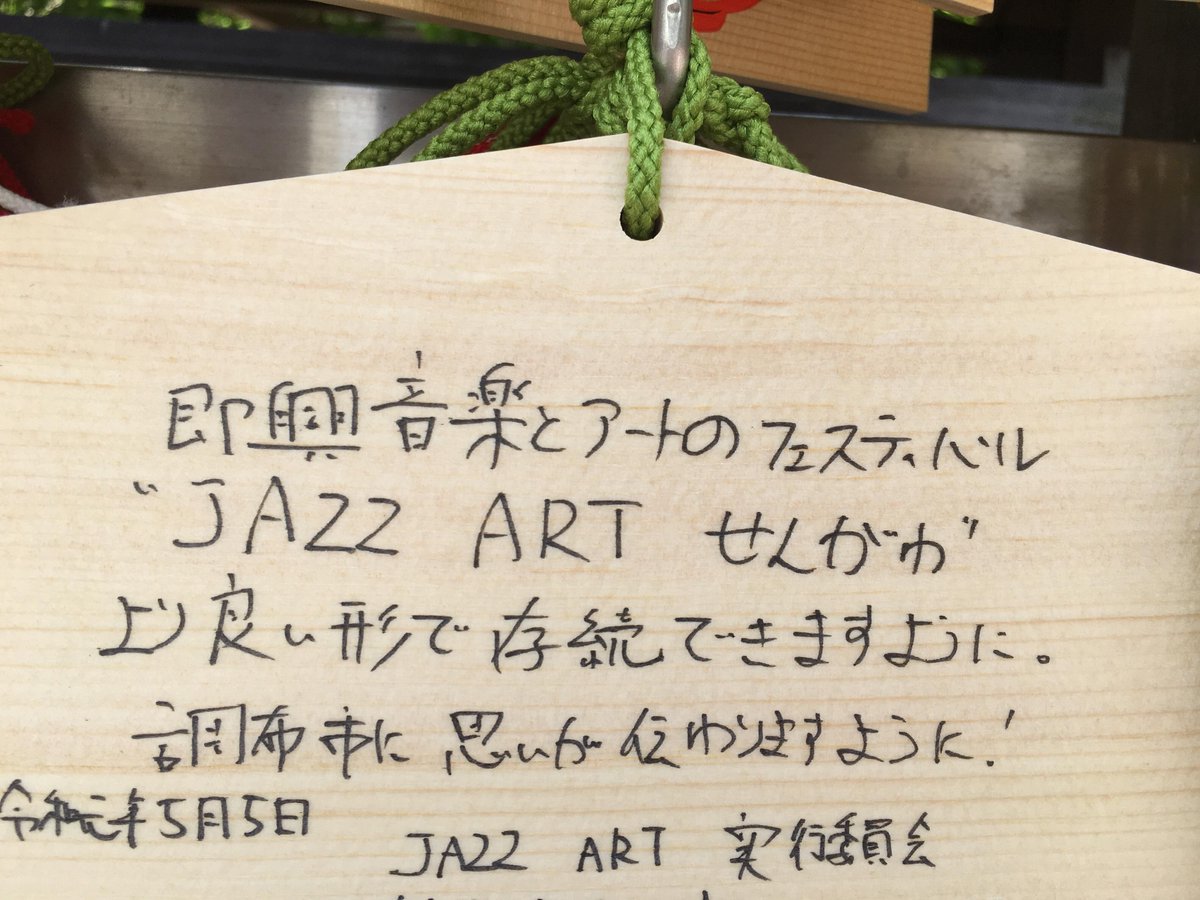 即興音楽とアートのフェスティバル
“JAZZ ART せんがわ”
より良い形で存続できますように。
調布市に思いが伝わりますように!
令和元年5月5日
JAZZ ART 実行委員会